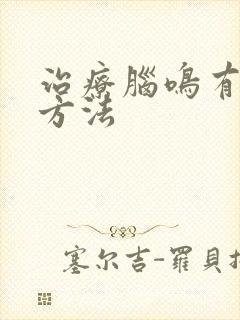 治療腦鳴有
方法
塞尔吉-羅貝